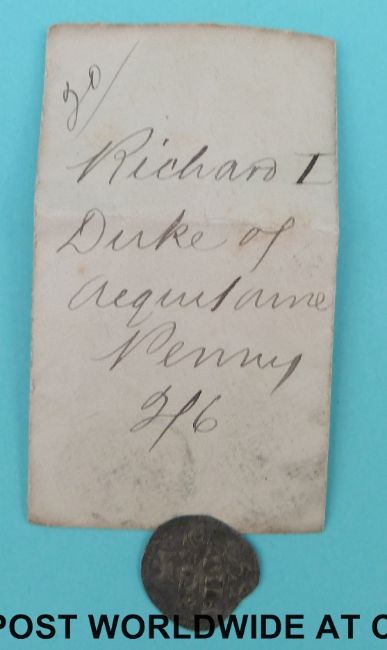 20/
Richard I
Duke of
Acquitaine
Penny
2/6
POST WORLDWIDE AT C